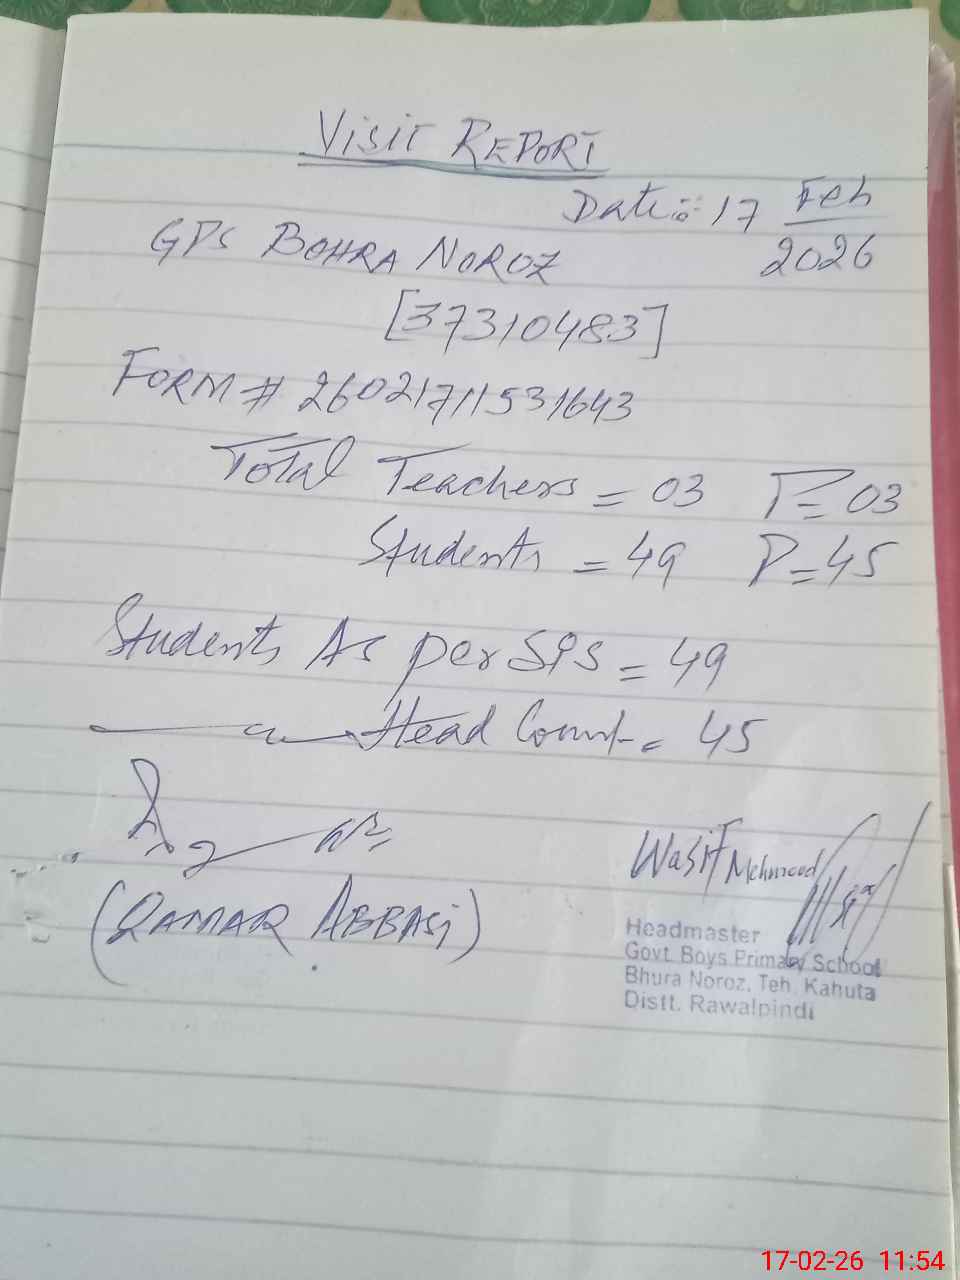 VISIT REPORT
Date: 17 Feb 2026
GPS BOHRA NOROZ
[37310483]
FORM # 26021711531643
Total Teachers = 03 P = 03
Students = 49 P = 45
Students As per SIS = 49
Head Count = 45
(QAMAR ABBASI)
Wasif Mehmood
Headmaster
Govt. Boys Primary School
Bhura Noroz, Teh. Kahuta
Distt. Rawalpindi
17-02-26 11:54